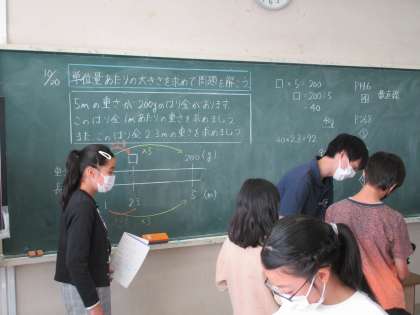 10/20
単位量あたりの大きさを求めて問題を解こう
5mの重さが200gのはり金があります。
このはり金1mあたりの重さを求めましょう
また、このはり金2.3mの重さを求めましょう
×5
□ 200 (g)
1 2.3 5 (m)
×5
□×5=200
□=200÷5
=40
40g
40×2.3=92
P146
図
P263
①
数直線